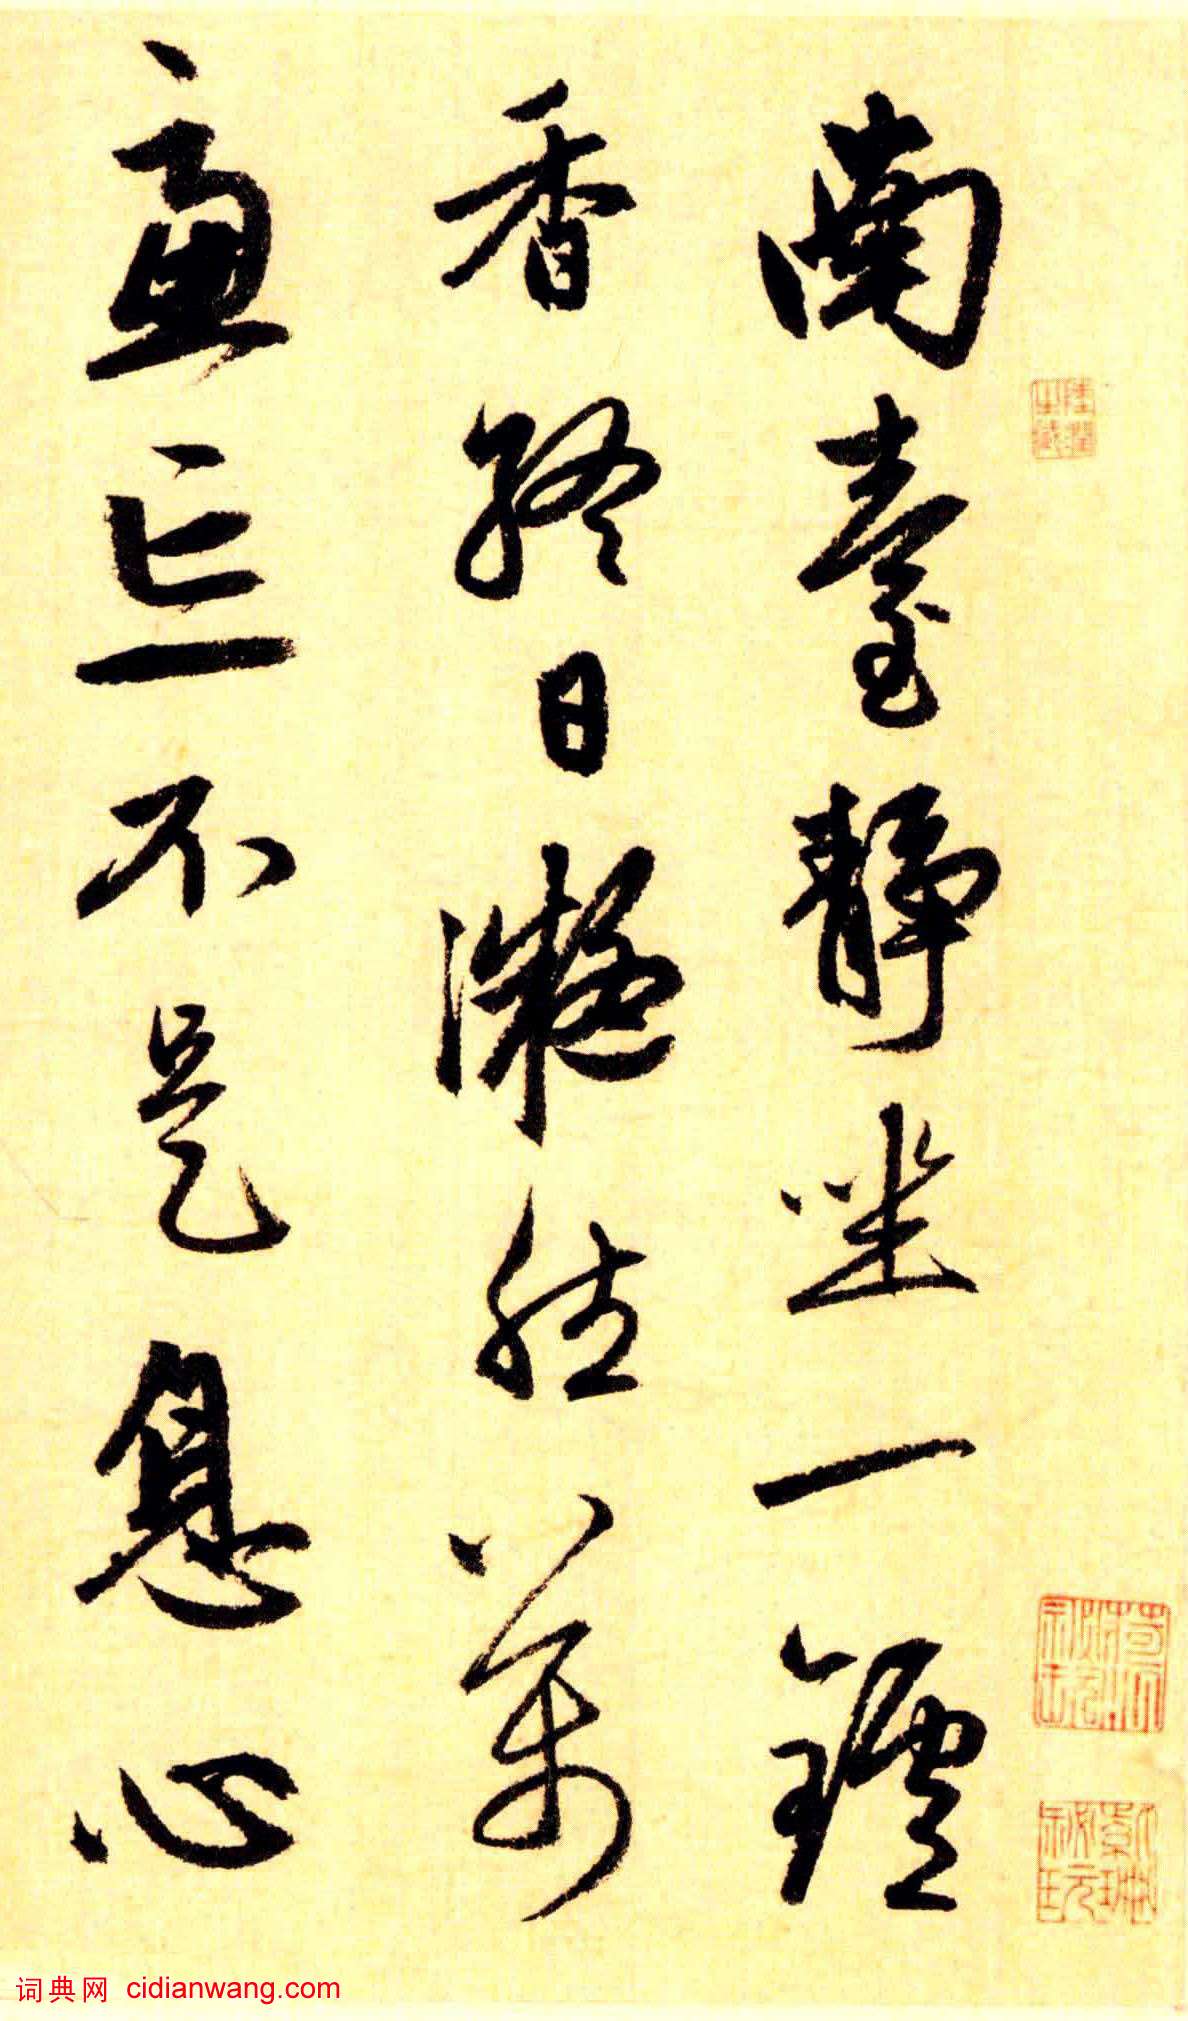 南臺靜坐一鑪
香終日凝然萬
慮亡不是息心
词典网 cidianwang.com